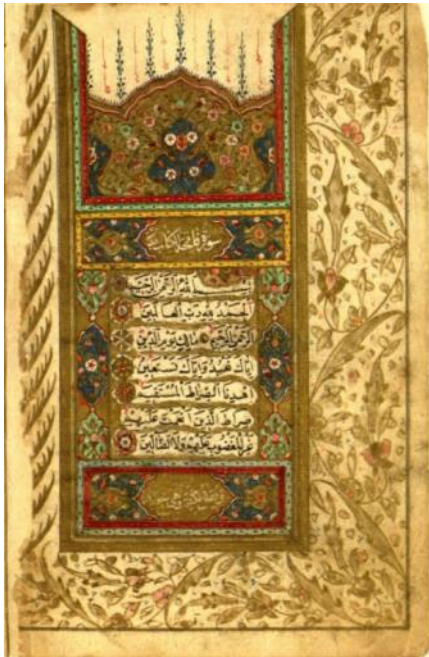 سورة فاتحة الكتاب
بسم الله الرحمن الرحيم
الحمد لله رب العالمين
الرحمن الرحيم مالك يوم الدين
اياك نعبد واياك نستعين
اهدنا الصراط المستقيم
صراط الذين انعمت عليهم
غير المغضوب عليهم ولا الضالين